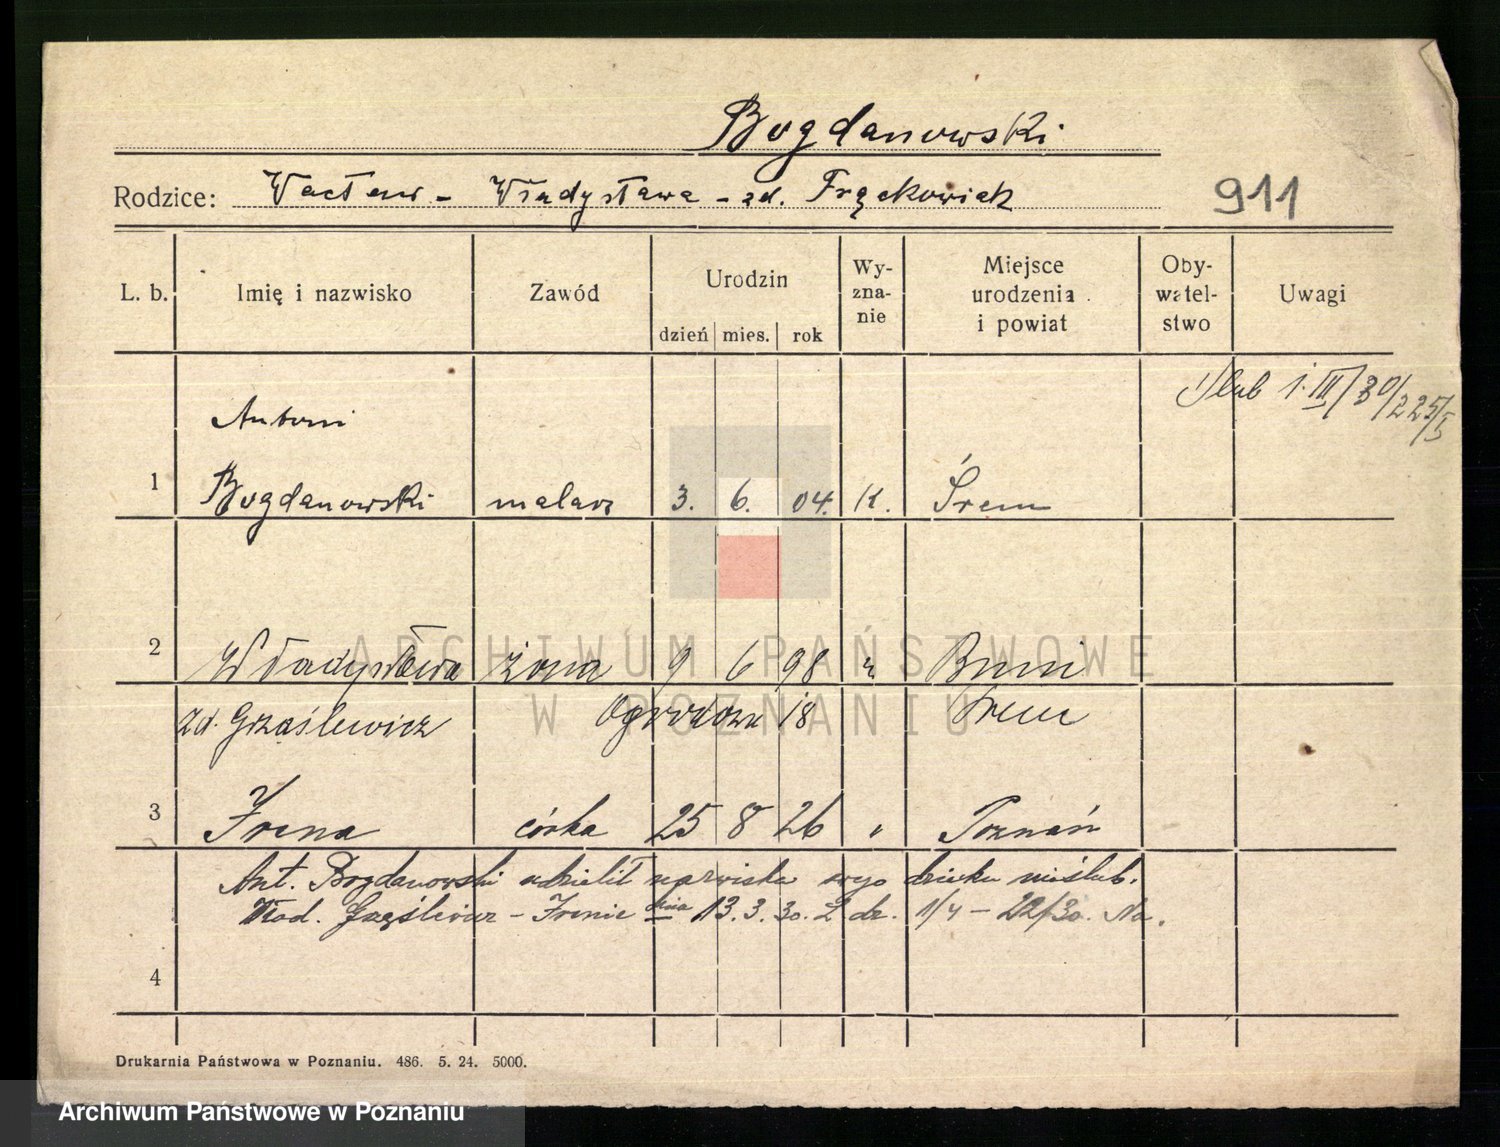 Bogdanowski
Rodzice: Wacław - Władysława - zd. Frąckowiak 911
L. b. Imię i nazwisko Zawód Urodzin Wy-zna-nie Miejsce urodzenia i powiat Oby-watel-stwo Uwagi
dzień mies. rok
Ślub 1. III/30/225/5
Antoni
1 Bogdanowski malarz 3. 6. 04. K. Śrem
2 Władysława żona 9 6 98 " Bnin
zd. Grząślewicz Ogrodowa 18 Śrem
3 Irena córka 25 8 26 " Poznań
Ant. Bogdanowski udzielił nazwiska swego dziecku nieślub.
Wład. Grząślewicz - Irenie dnia 13. 3. 30. 2 dz. 1/4 - 22/30. No.
4
Drukarnia Państwowa w Poznaniu. 486. 5. 24. 5000.
ARCHIWUM PAŃSTWOWE
W POZNANIU
Archiwum Państwowe w Poznaniu